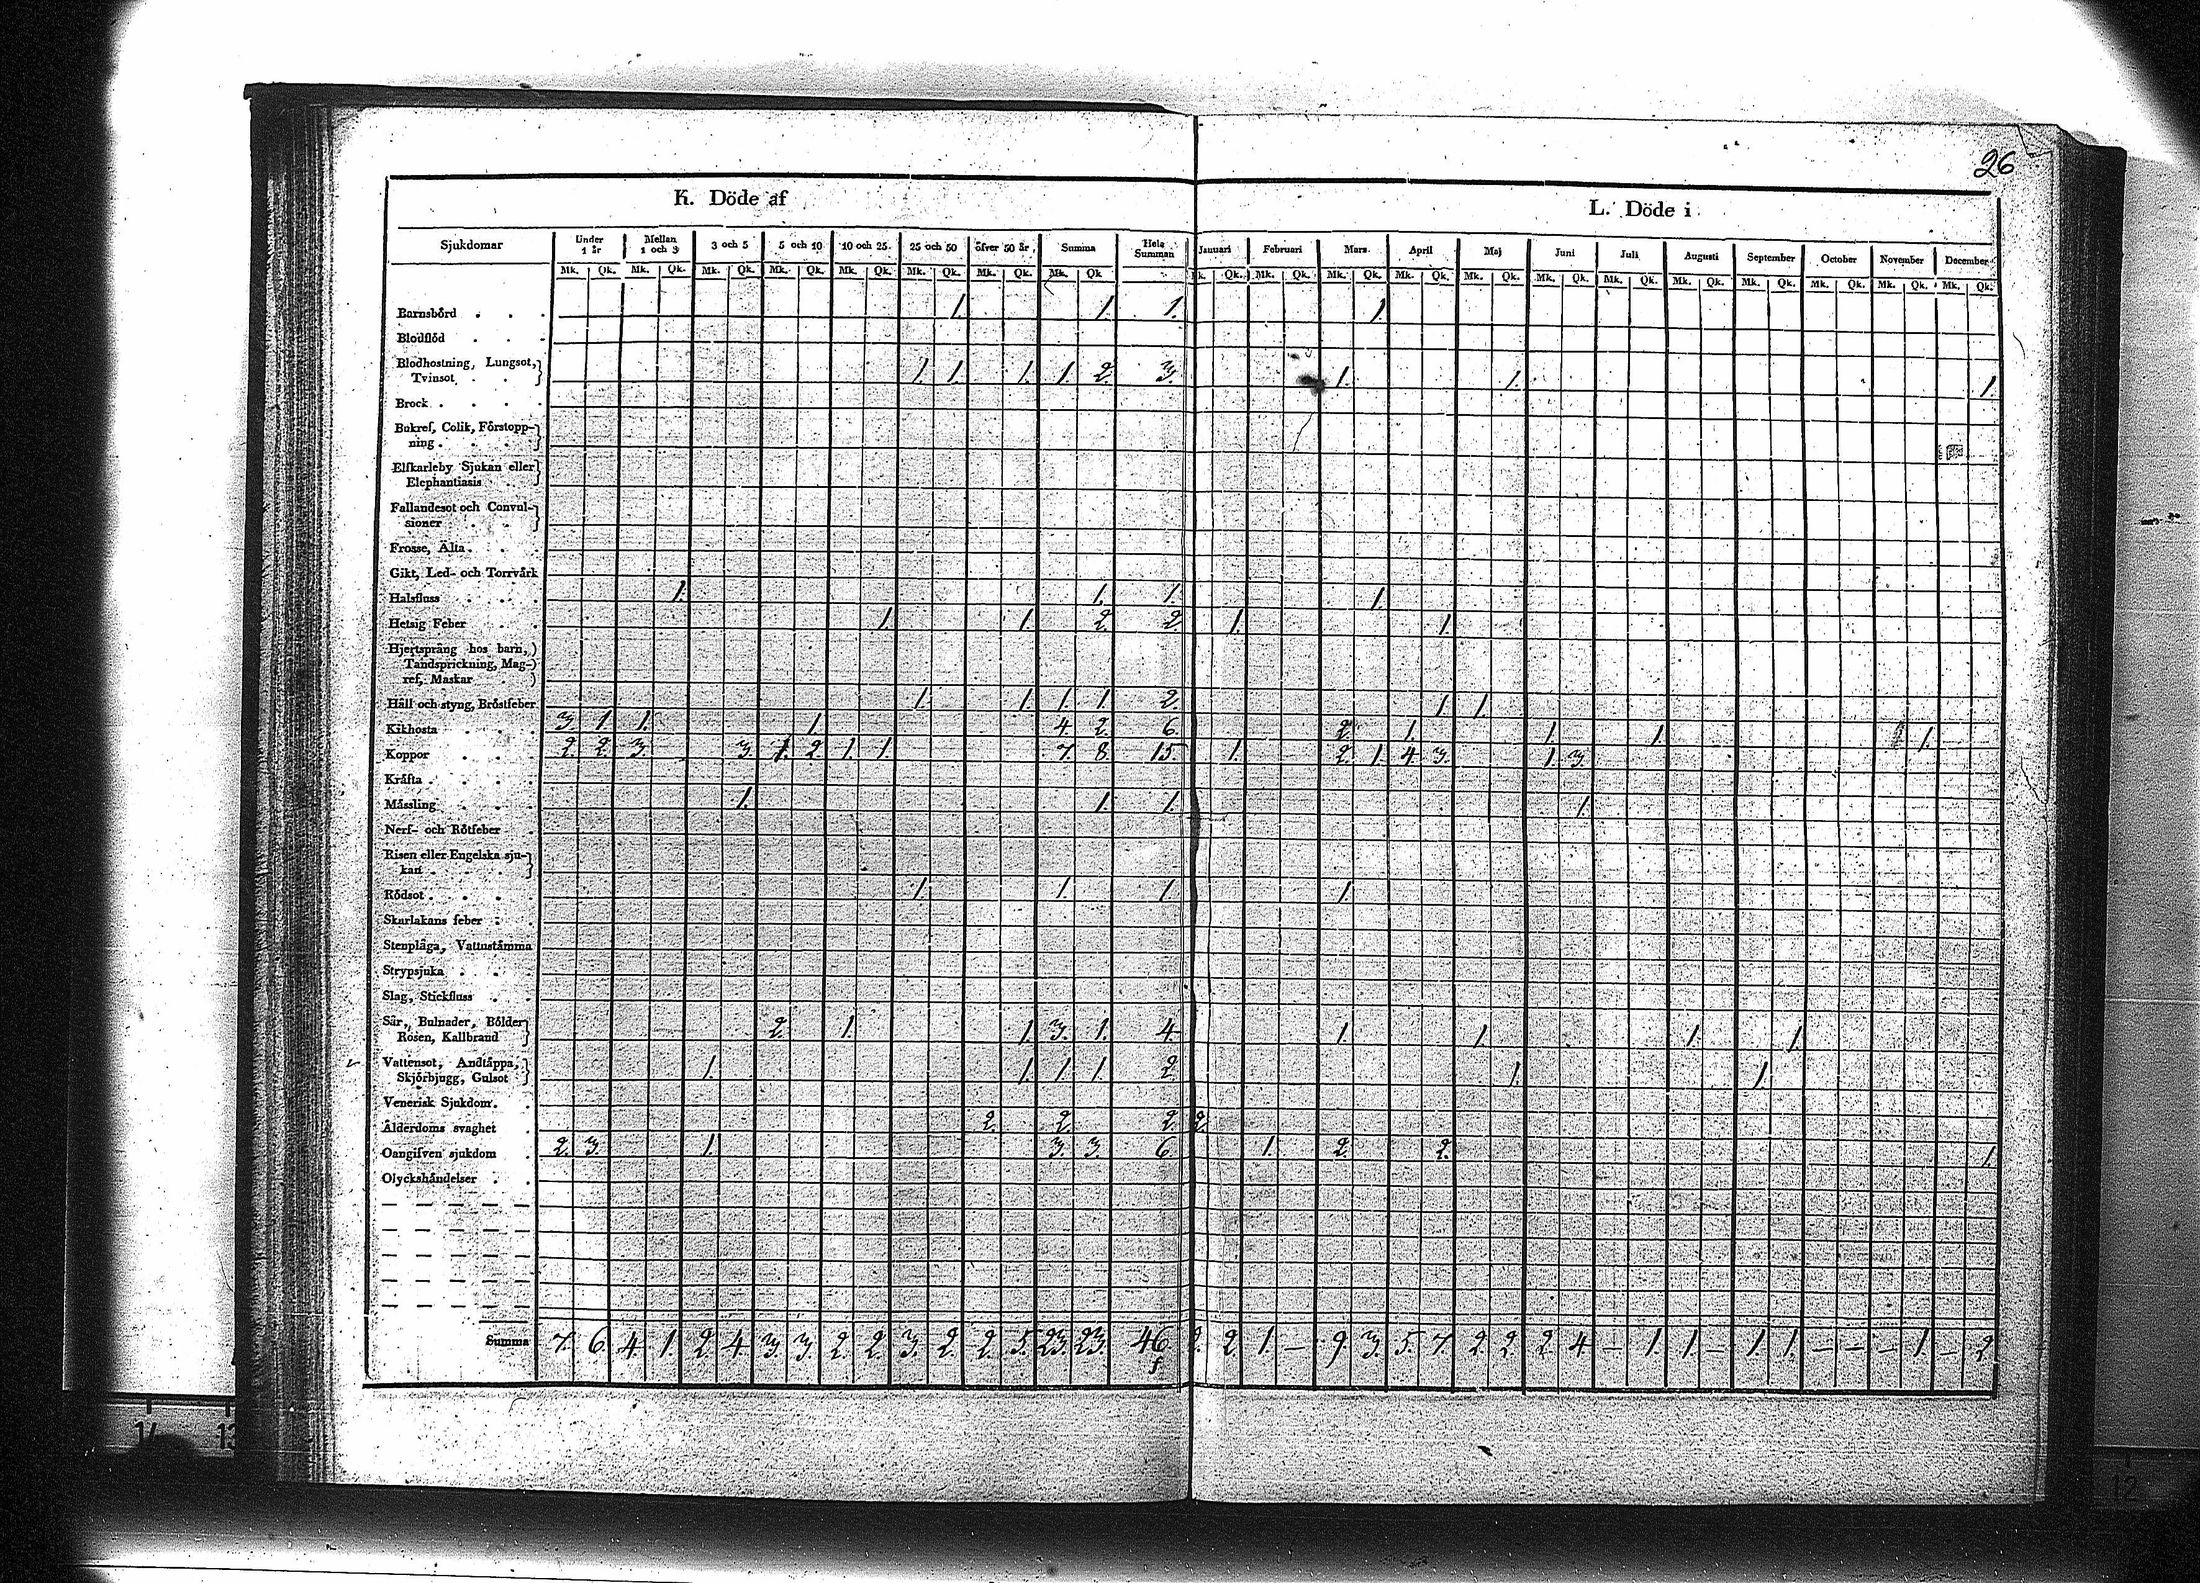 26
K. Döde af
L. Döde i
Sjukdomar Under 1 år Mellan 1 och 3 3 och 5 5 och 10 10 och 25 25 och 50 öfver 50 år Summa Hela Summan Januari Februari Mars April Maj Juni Juli Augusti September October November December
Mk. Qk. Mk. Qk. Mk. Qk. Mk. Qk. Mk. Qk. Mk. Qk. Mk. Qk. Mk. Qk. Mk. Qk. Mk. Qk. Mk. Qk. Mk. Qk. Mk. Qk. Mk. Qk. Mk. Qk. Mk. Qk. Mk. Qk. Mk. Qk. Mk. Qk. Mk. Qk.
Barnsbörd . . . 1. 1. 1. 1.
Blodflöd . . .
Blodhostning, Lungsot,
Tvinsot . . 1. 1. 1. 1. 2. 3. 1. 1. 1.
Brock . . . .
Bukref, Colik, Förstopp-
ning . . .
Elfkarleby Sjukan eller
Elephantiasis
Fallandesot och Convul-
sioner . .
Frosse, Älta . . .
Gikt, Led- och Torrvärk
Halsfluss . . . 1. 1. 1. 1.
Hetsig Feber . . 1. 1. 2. 2. 1. 1.
Hjertspräng hos barn,
Tandsprickning, Mag-
ref, Maskar
Håll och styng, Bröstfeber 1. 1. 1. 1. 2. 1. 1.
Kikhosta . . . 3. 1. 1. 1. 4. 2. 6. 2. 1. 1. 1. 1.
Koppor . . . 2. 2. 3. 3. 1. 2. 1. 1. 7. 8. 15. 1. 2. 1. 4. 3. 1. 3.
Kräfta . . . .
Mässling . . . 1. 1. 1. 1.
Nerf- och Rötfeber .
Risen eller Engelska sju-
kan . . .
Rödsot . . . . 1. 1. 1. 1.
Skarlakans feber . .
Stenplåga, Vattustämma
Strypsjuka . . .
Slag, Stickfluss . .
Sår, Bulnader, Bölder
Rosen, Kallbrand 2. 1. 1. 3. 1. 4. 1. 1. 1. 1.
Vattensot, Andtäppa,
Skjörbjugg, Gulsot 1. 1. 1. 1. 2. 1. 1.
Venerisk Sjukdom . .
Ålderdoms svaghet . 2. 2. 2. 2.
Oangifven sjukdom . 2. 3. 1. 3. 3. 6. 1. 2. 2. 1.
Olyckshändelser . .
Summa 7. 6. 4. 1. 2. 4. 3. 3. 2. 2. 3. 2. 2. 5. 23. 23. 46. 2. 2 1. — 9. 3. 5. 7. 2. 2. 2. 4. — 1. 1. — 1. 1. — — — 1. — 2.
14 13
12